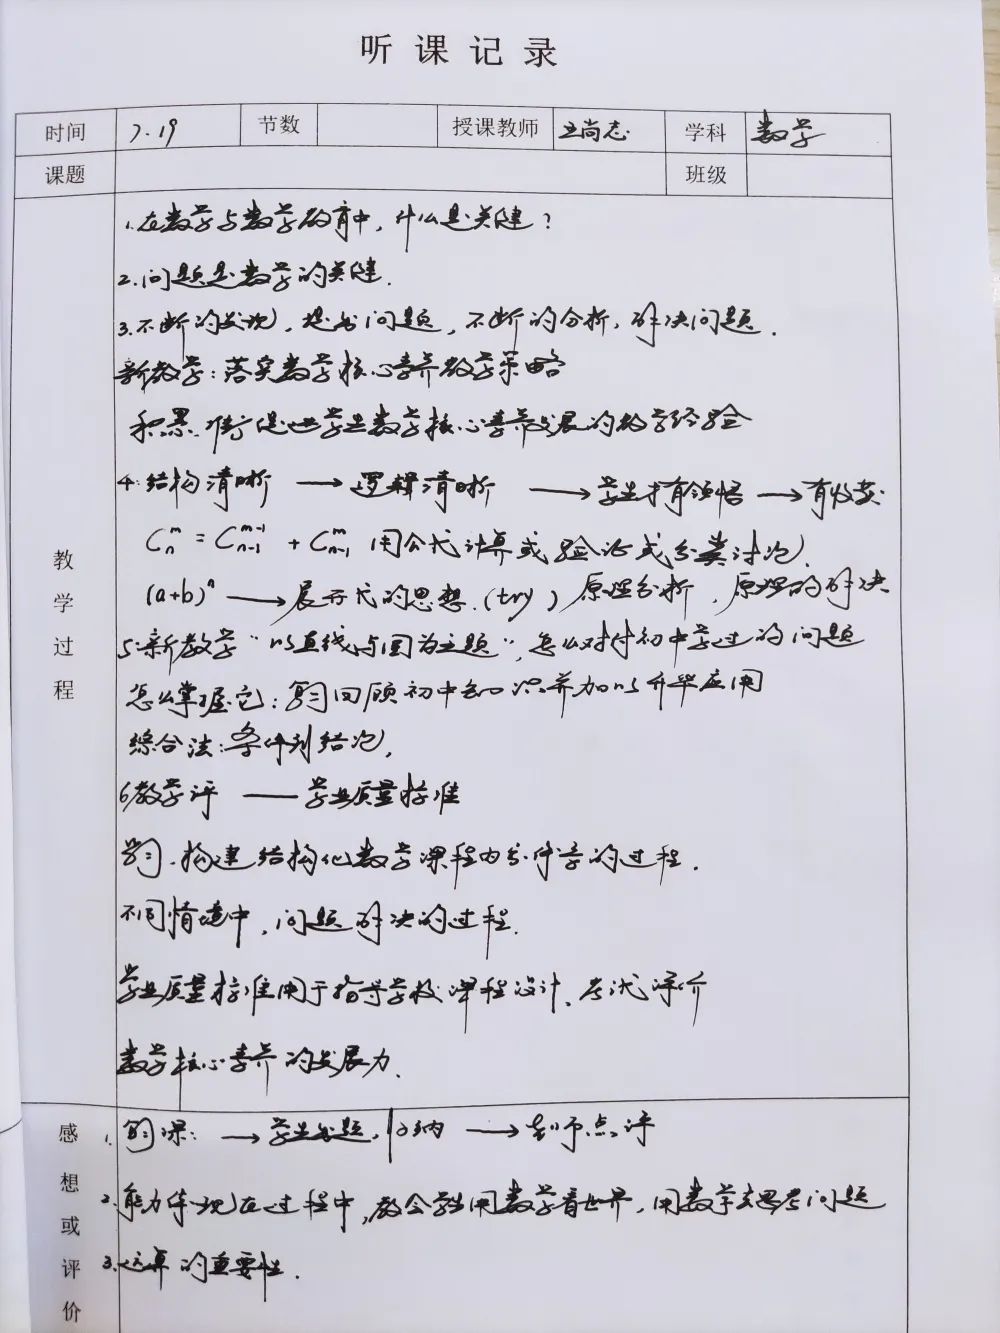 听课记录
时间 7.19 节数 授课教师 王尚志 学科 数学
课题 班级
教学过程
1.在数学与数学教育中，什么是关键？
2.问题是数学的关键.
3.不断的发现，提出问题，不断的分析，解决问题.
新教学：落实数学核心素养教学策略
积累 促进学生数学核心素养发展的教学经验
4.结构清晰 → 逻辑清晰 → 学生才有领悟 → 有收获
Cₙᵐ = Cₙ₋₁ᵐ⁻¹ + Cₙ₋₁ᵐ 用公式计算或验证或分类讨论.
(a+b)ⁿ → 展开式的思想.(try) 原理分析，原理的解决
5.新教学“以直线与圆为主题”，怎么对付初中学过的问题
怎么掌握它：复习回顾初中知识并加以升华应用
综合法：条件到结论.
6教学评 —— 学业质量标准
学习.构建结构化数学课程内容体系的过程.
不同情境中，问题解决的过程.
学业质量标准用于指导学校课程设计、考试评价
数学核心素养的发展力.
感想或评价
1. 复习课：→ 学生出题，归纳 → 老师点评
2.能力体现在过程中，教会学生用数学看世界，用数学去思考问题
3.运算的重要性.